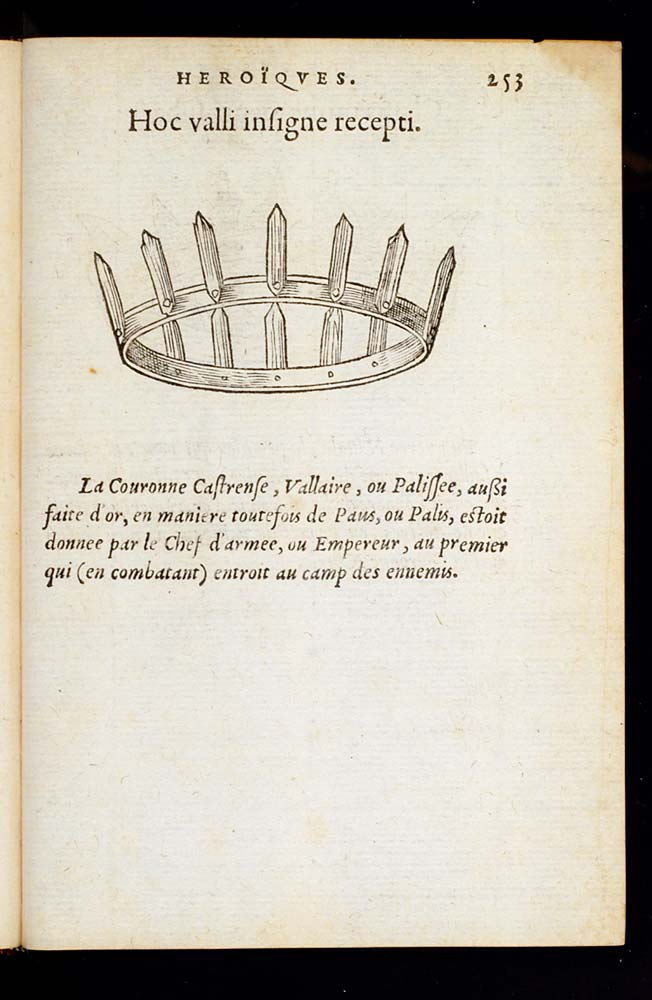 HEROÏQVES. 253
Hoc valli inſigne recepti.
La Couronne Caſtrenſe, Vallaire, ou Paliſſee, außi
faite d'or, en maniere toutefois de Paus, ou Palis, eſtoit
donnee par le Chef d'armee, ou Empereur, au premier
qui (en combatant) entroit au camp des ennemis.